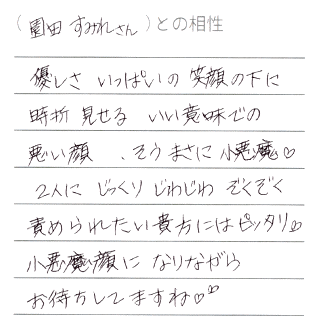 （園田 すみれさん）との相性
優しさ いっぱいの 笑顔の下に
時折 見せる いい意味での
悪い顔 、そう まさに 小悪魔♡
2人に じっくり じわじわ ぞくぞく
責められたい貴方にはピッタリ♡
小悪魔顔に なりながら
お待ちしてますね♡